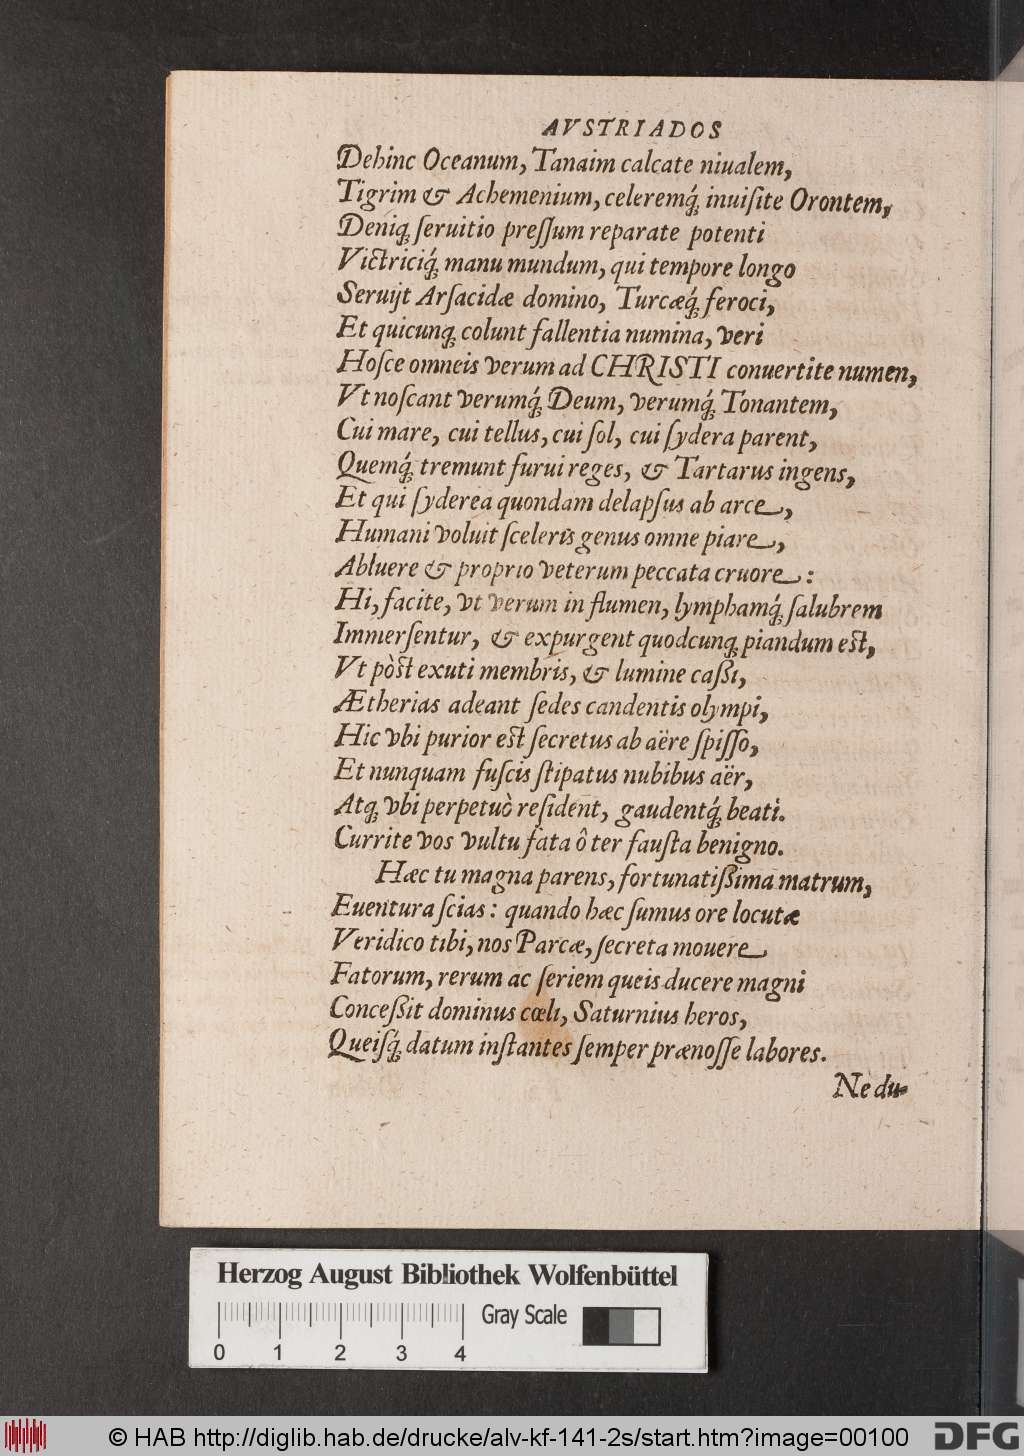 AVSTRIADOS
Dehinc Oceanum, Tanaim calcate niualem,
Tigrim & Achemenium, celeremq́ꝫ inuiſite Orontem,
Deniqꝫ ſeruitio preſſum reparate potenti
Victriciq́ꝫ manu mundum, qui tempore longo
Seruijt Arſacidæ domino, Turcæq́ꝫ feroci,
Et quicunqꝫ colunt fallentia numina, veri
Hoſce omneis verum ad CHRISTI conuertite numen,
Vt noſcant verumq́ꝫ Deum, verumq́ꝫ Tonantem,
Cui mare, cui tellus, cui ſol, cui ſydera parent,
Quemq́ꝫ tremunt furui reges, & Tartarus ingens,
Et qui ſyderea quondam delapſus ab arce,
Humani voluit ſceleris genus omne piare,
Abluere & proprio veterum peccata cruore:
Hi, facite, vt verum in flumen, lymphamq́ꝫ ſalubrem
Immerſentur, & expurgent quodcunqꝫ piandum eſt,
Vt pòſt exuti membris, & lumine caßi,
Ætherias adeant ſedes candentis olympi,
Hic vbi purior eſt ſecretus ab aëre ſpiſſo,
Et nunquam fuſcis ſtipatus nubibus aër,
Atqꝫ vbi perpetuò reſident, gaudentq́ꝫ beati.
Currite vos vultu fata ô ter fauſta benigno.
Hæc tu magna parens, fortunatißima matrum,
Euentura ſcias: quando hæc ſumus ore locutæ
Veridico tibi, nos Parcæ, ſecreta mouere
Fatorum, rerum ac ſeriem queis ducere magni
Conceßit dominus cœli, Saturnius heros,
Queiſq́ꝫ datum inſtantes ſemper prænoſſe labores.
Ne du-
Herzog August Bibliothek Wolfenbüttel
Gray Scale
0 1 2 3 4
© HAB http://diglib.hab.de/drucke/alv-kf-141-2s/start.htm?image=00100
DFG